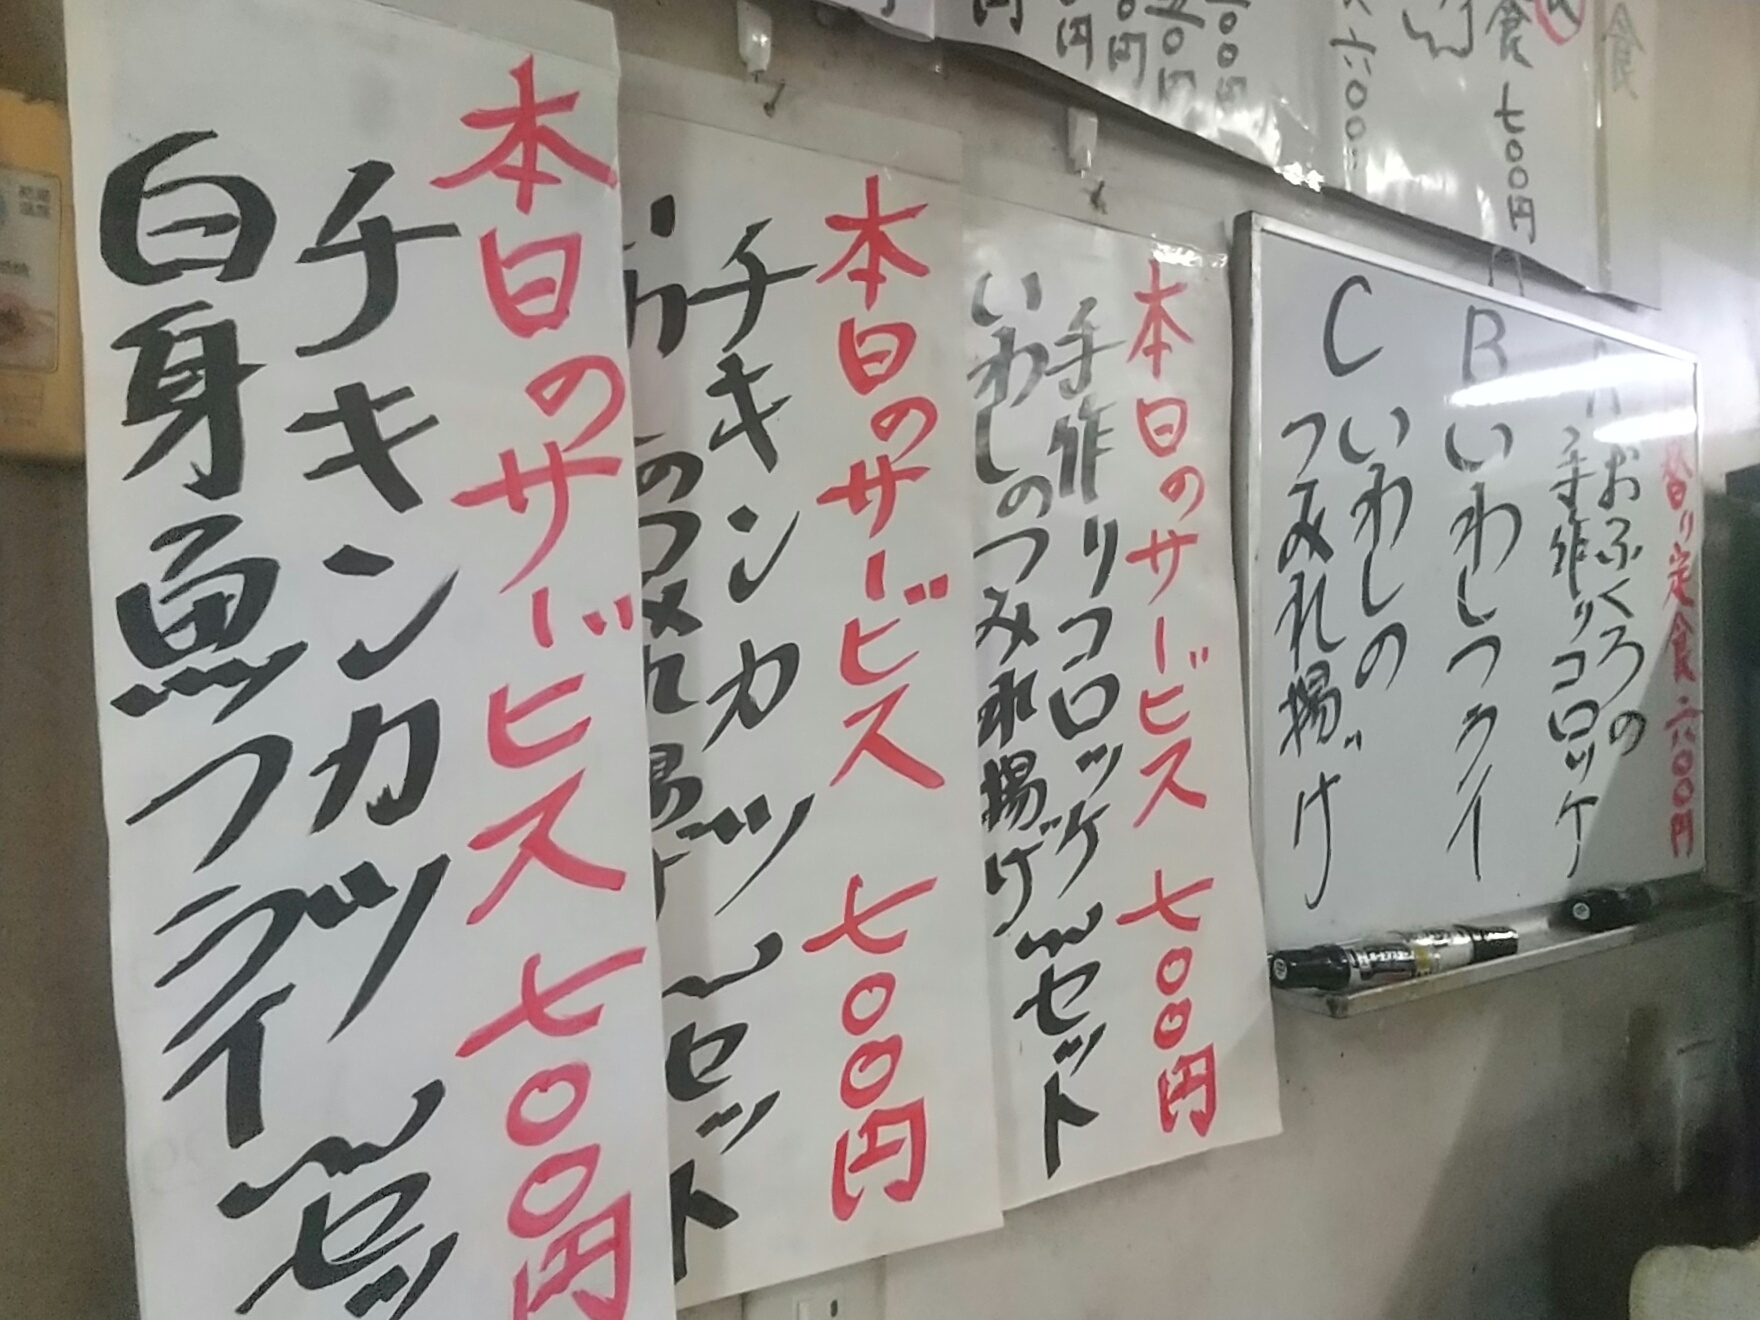 本日のサービス 七〇〇円
チキンカツ
白身魚フライ
〜セッ
本日のサービス 七〇〇円
チキンカツ
のつみれ揚げ
〜セット
本日のサービス 七〇〇円
手作りコロッケ
いわしのつみれ揚げ
〜セット
替り定食 六〇〇円
おふくろの
手作りコロッケ
B いわしフライ
C いわしの
つみれ揚げ
食 七〇〇円
六〇〇
食